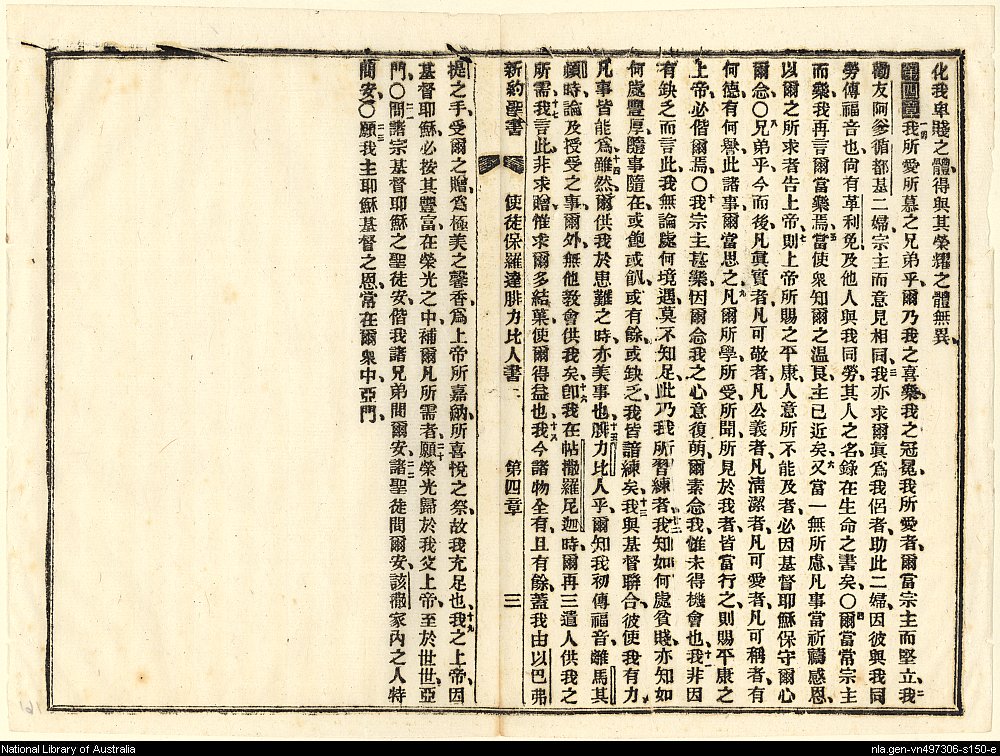 化我卑賤之體、得與其榮耀之體無異、
第四章 一我所愛所慕之兄弟乎、爾乃我之喜樂、我之冠冕、我所愛者、爾當宗主而堅立、二我
勸友阿爹循都基二婦、宗主而意見相同、三我亦求爾眞爲我侶者、助此二婦、因彼與我同
勞傳福音也、尙有革利免及他人與我同勞、其人之名、錄在生命之書矣、〇四爾當常宗主
而樂、我再言爾當樂焉、五當使衆知爾之温良、主已近矣、六又當一無所慮、凡事當祈禱感恩、
以爾之所求者告上帝、七則上帝所賜之平康、人意所不能及者、必因基督耶穌保守爾心
爾念、〇八兄弟乎、今而後、凡眞實者、凡可敬者、凡公義者、凡清潔者、凡可愛者、凡可稱者、有
何德有何譽、此諸事爾當思之、九凡爾所學所受、所聞所見於我者、皆當行之、則賜平康之
上帝、必偕爾焉、〇十我宗主甚樂、因爾念我之心意復萌、爾素念我、惟未得機會也、十一我非因
有缺乏而言此、我無論處何境遇、莫不知足、此乃我所習練者、十二我知如何處貧賤、亦知如
何處豐厚、隨事隨在、或飽或飢、或有餘或缺乏、我皆諳練矣、十三我與基督聯合、彼使我有力、
凡事皆能爲、十四雖然爾供我於患難之時、亦美事也、十五腓力比人乎、爾知我初傳福音、離馬其
頓時、論及授受之事、爾外無他敎會供我矣、十六卽我在帖撒羅尼迦時、爾再三遣人供我之
所需、十七我言此、非求贈、惟求爾多結菓、使爾得益也、十八我今諸物全有、且有餘、蓋我由以巴弗
新約聖書 使徒保羅達腓力比人書 第四章 三
提之手、受爾之贈、爲極美之馨香、爲上帝所嘉納、所喜悅之祭、故我充足也、十九我之上帝、因
基督耶穌、必按其豐富、在榮光之中、補爾凡所需者、二十願榮光歸於我父上帝、至於世世、亞
門、〇二一問諸宗基督耶穌之聖徒安、偕我諸兄弟問爾安、二二諸聖徒問爾安、該撒家內之人特
問安、〇二三願我主耶穌基督之恩、常在爾衆中、亞門、
National Library of Australia
nla.gen-vn497306-s150-e